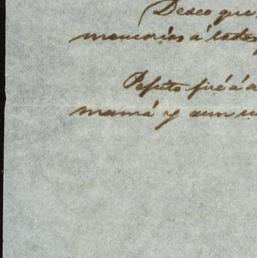 Deseo que
memorias á todos
Pepito fué á
mamá y aun